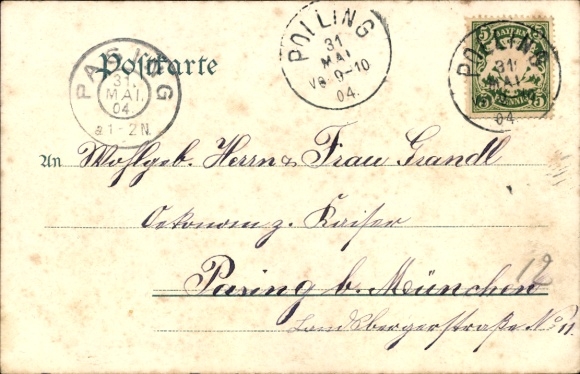 Postkarte
PASING
31.
MAI.
04.
a 1-2 N.
POLLING
31
MAI
VG 9-10
04.
POLLING
31
MAI
04
5 BAYERN 5
5 PFENNIG 5
An Wohlgeb. Herrn & Frau Grandl
Oekonom z. Kaiser
Pasing b. München
12
Landsbergerstraße No 11.